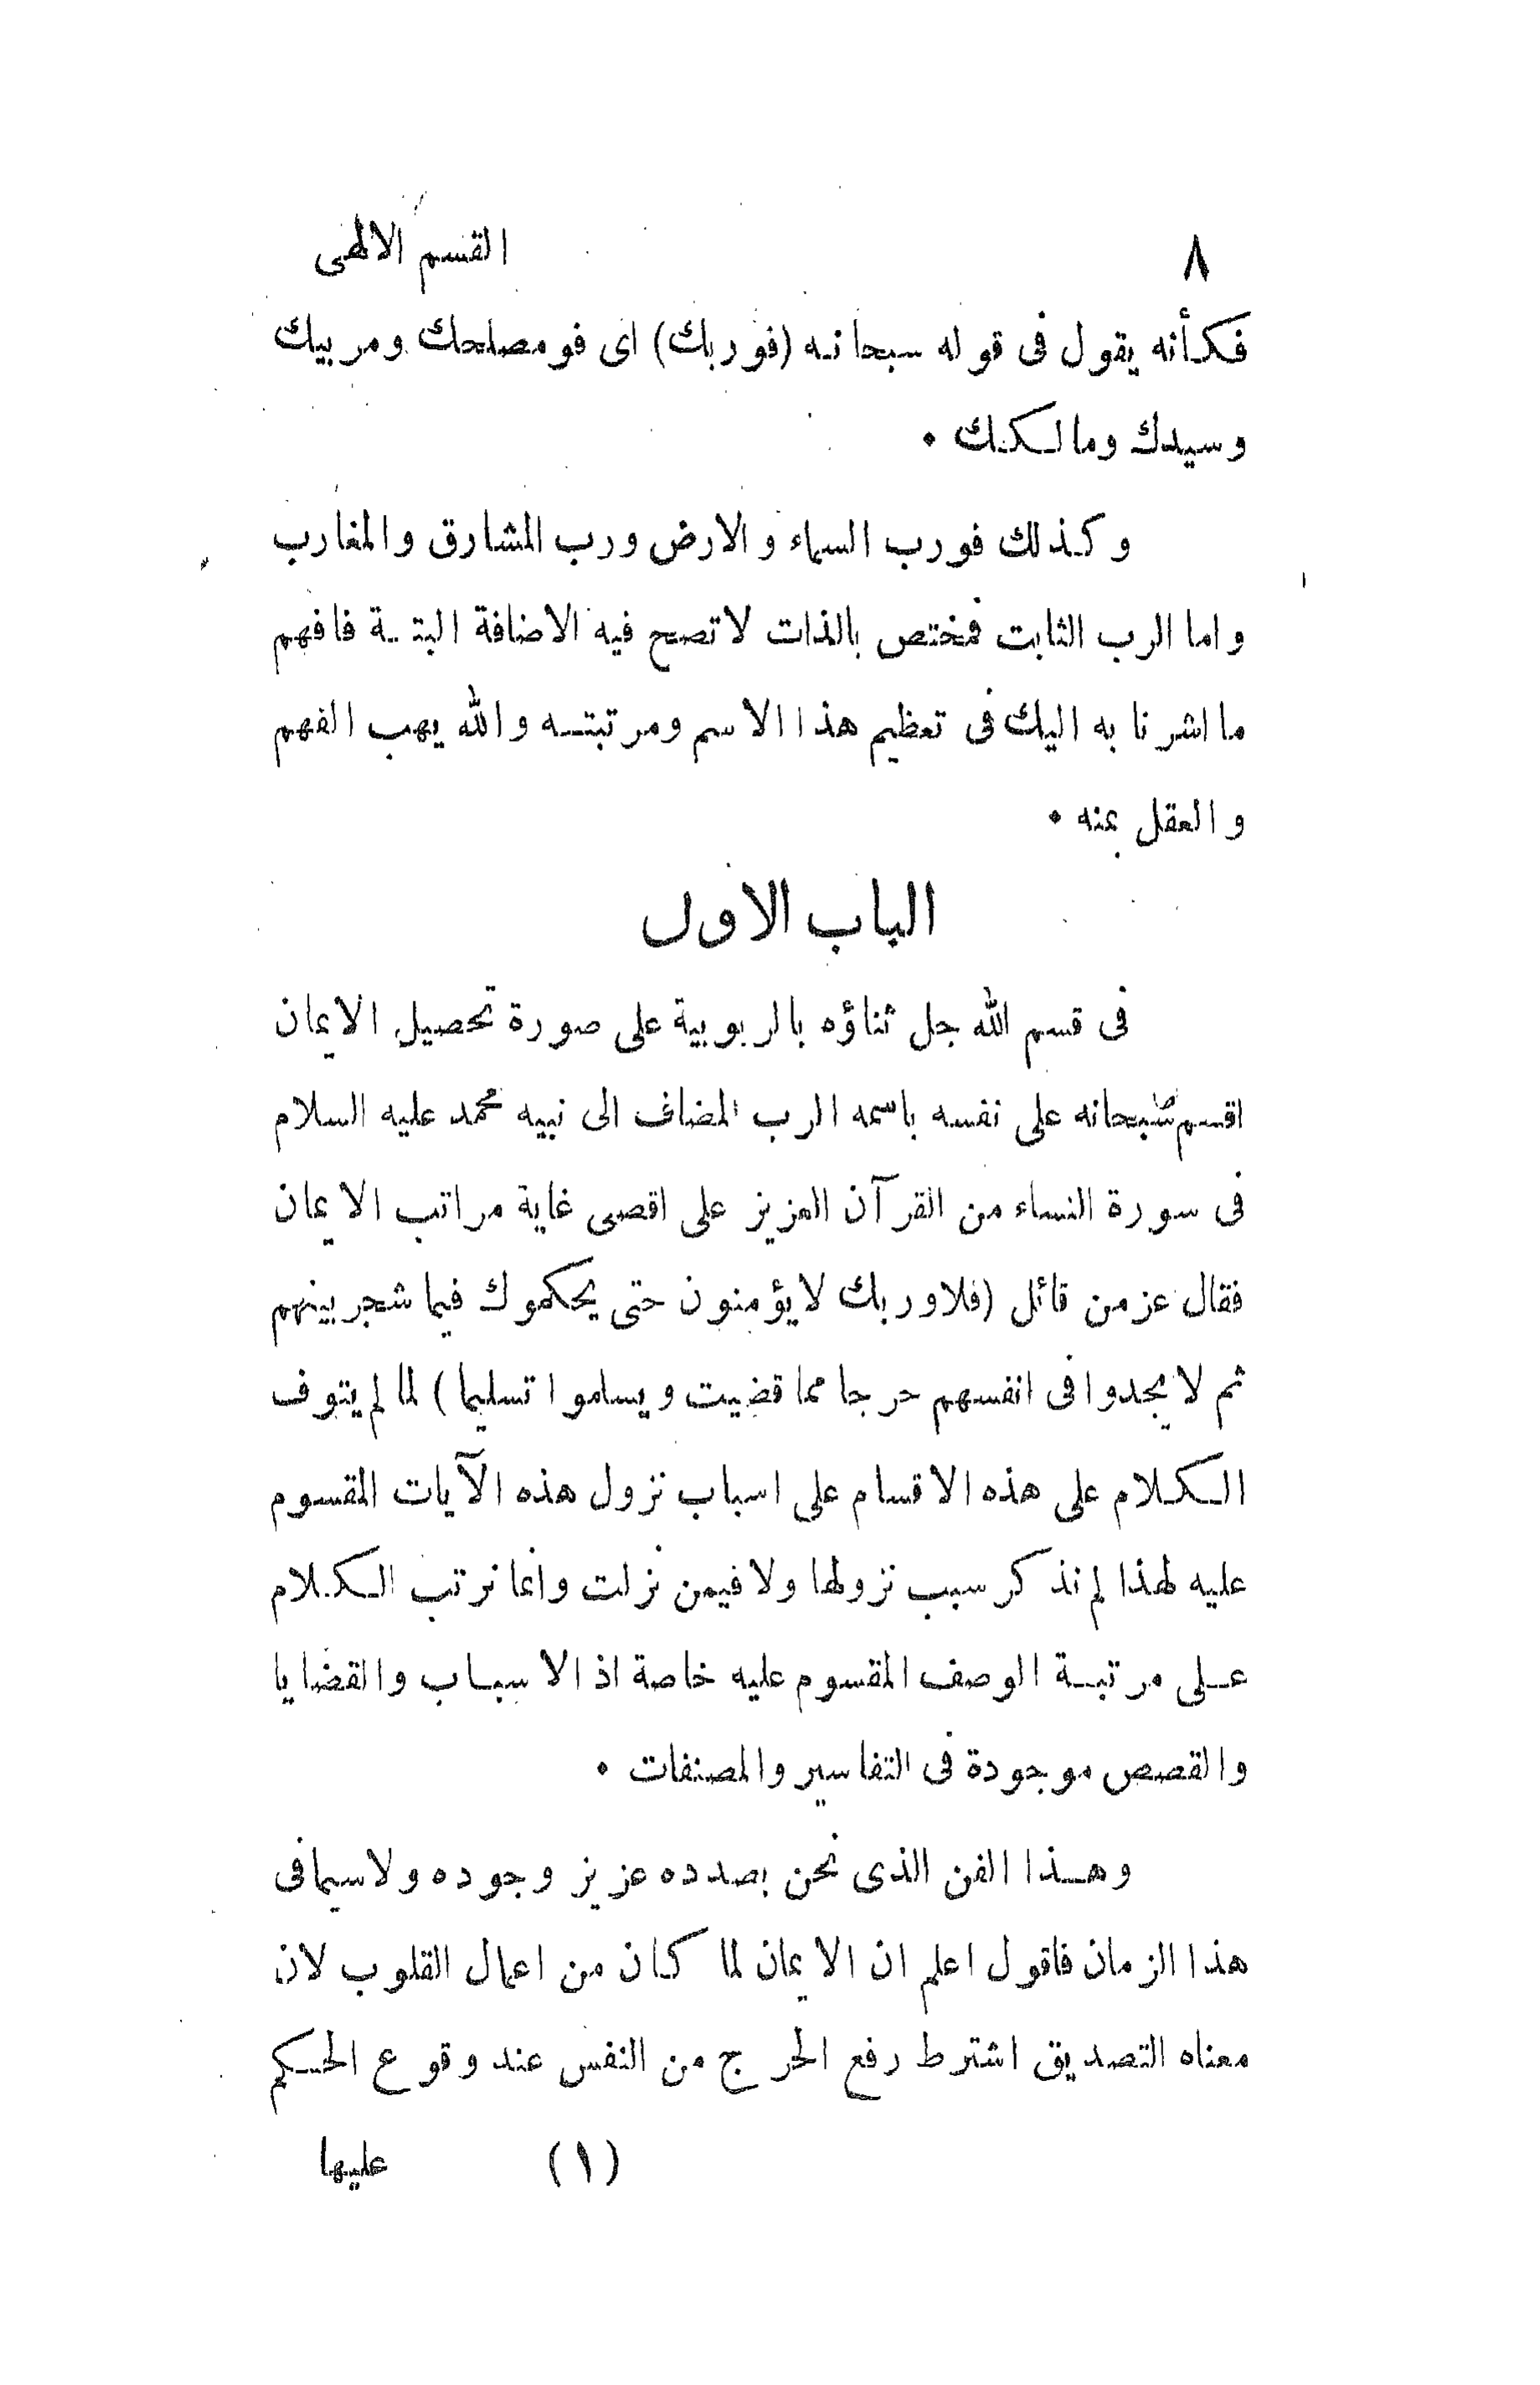 ٨ القسم الالهى
فكأنه يقول فى قوله سبحانه (فوربك) اى فومصلحك ومربيك
وسيدك ومالكك ٠
وكذلك فورب السماء والارض ورب المشارق والمغارب
واما الرب الثابت فمختص بالذات لاتصح فيه الاضافة البتة فافهم
ما اشرنا به اليك فى تعظيم هذا الاسم ومرتبته والله يهب الفهم
والعقل بمنه ٠
الباب الاول
فى قسم الله جل ثناؤه بالربوبية على صورة تحصيل الايمان
اقسم سبحانه على نفسه باسمه الرب المضاف الى نبيه محمد عليه السلام
فى سورة النساء من القرآن العزيز على اقصى غاية مراتب الايمان
فقال عزمن قائل (فلاوربك لايؤمنون حتى يحكموك فيما شجر بينهم
ثم لايجدوا فى انفسهم حرجا مما قضيت ويسلموا تسليما) لما لم يتوف
الكلام على هذه الاقسام على اسباب نزول هذه الآيات المقسوم
عليه لهذا لم نذكر سبب نزولها ولا فيمن نزلت وانما نرتب الكلام
على مرتبة الوصف المقسوم عليه خاصة اذ الاسباب والقضايا
والقصص موجودة فى التفاسير والمصنفات ٠
وهذا الفن الذى نحن بصدده عزيز وجوده ولاسيما فى
هذا الزمان فاقول اعلم ان الايمان لما كان من اعمال القلوب لان
معناه التصديق اشترط رفع الحرج من النفس عند وقوع الحكم
(١) عليها